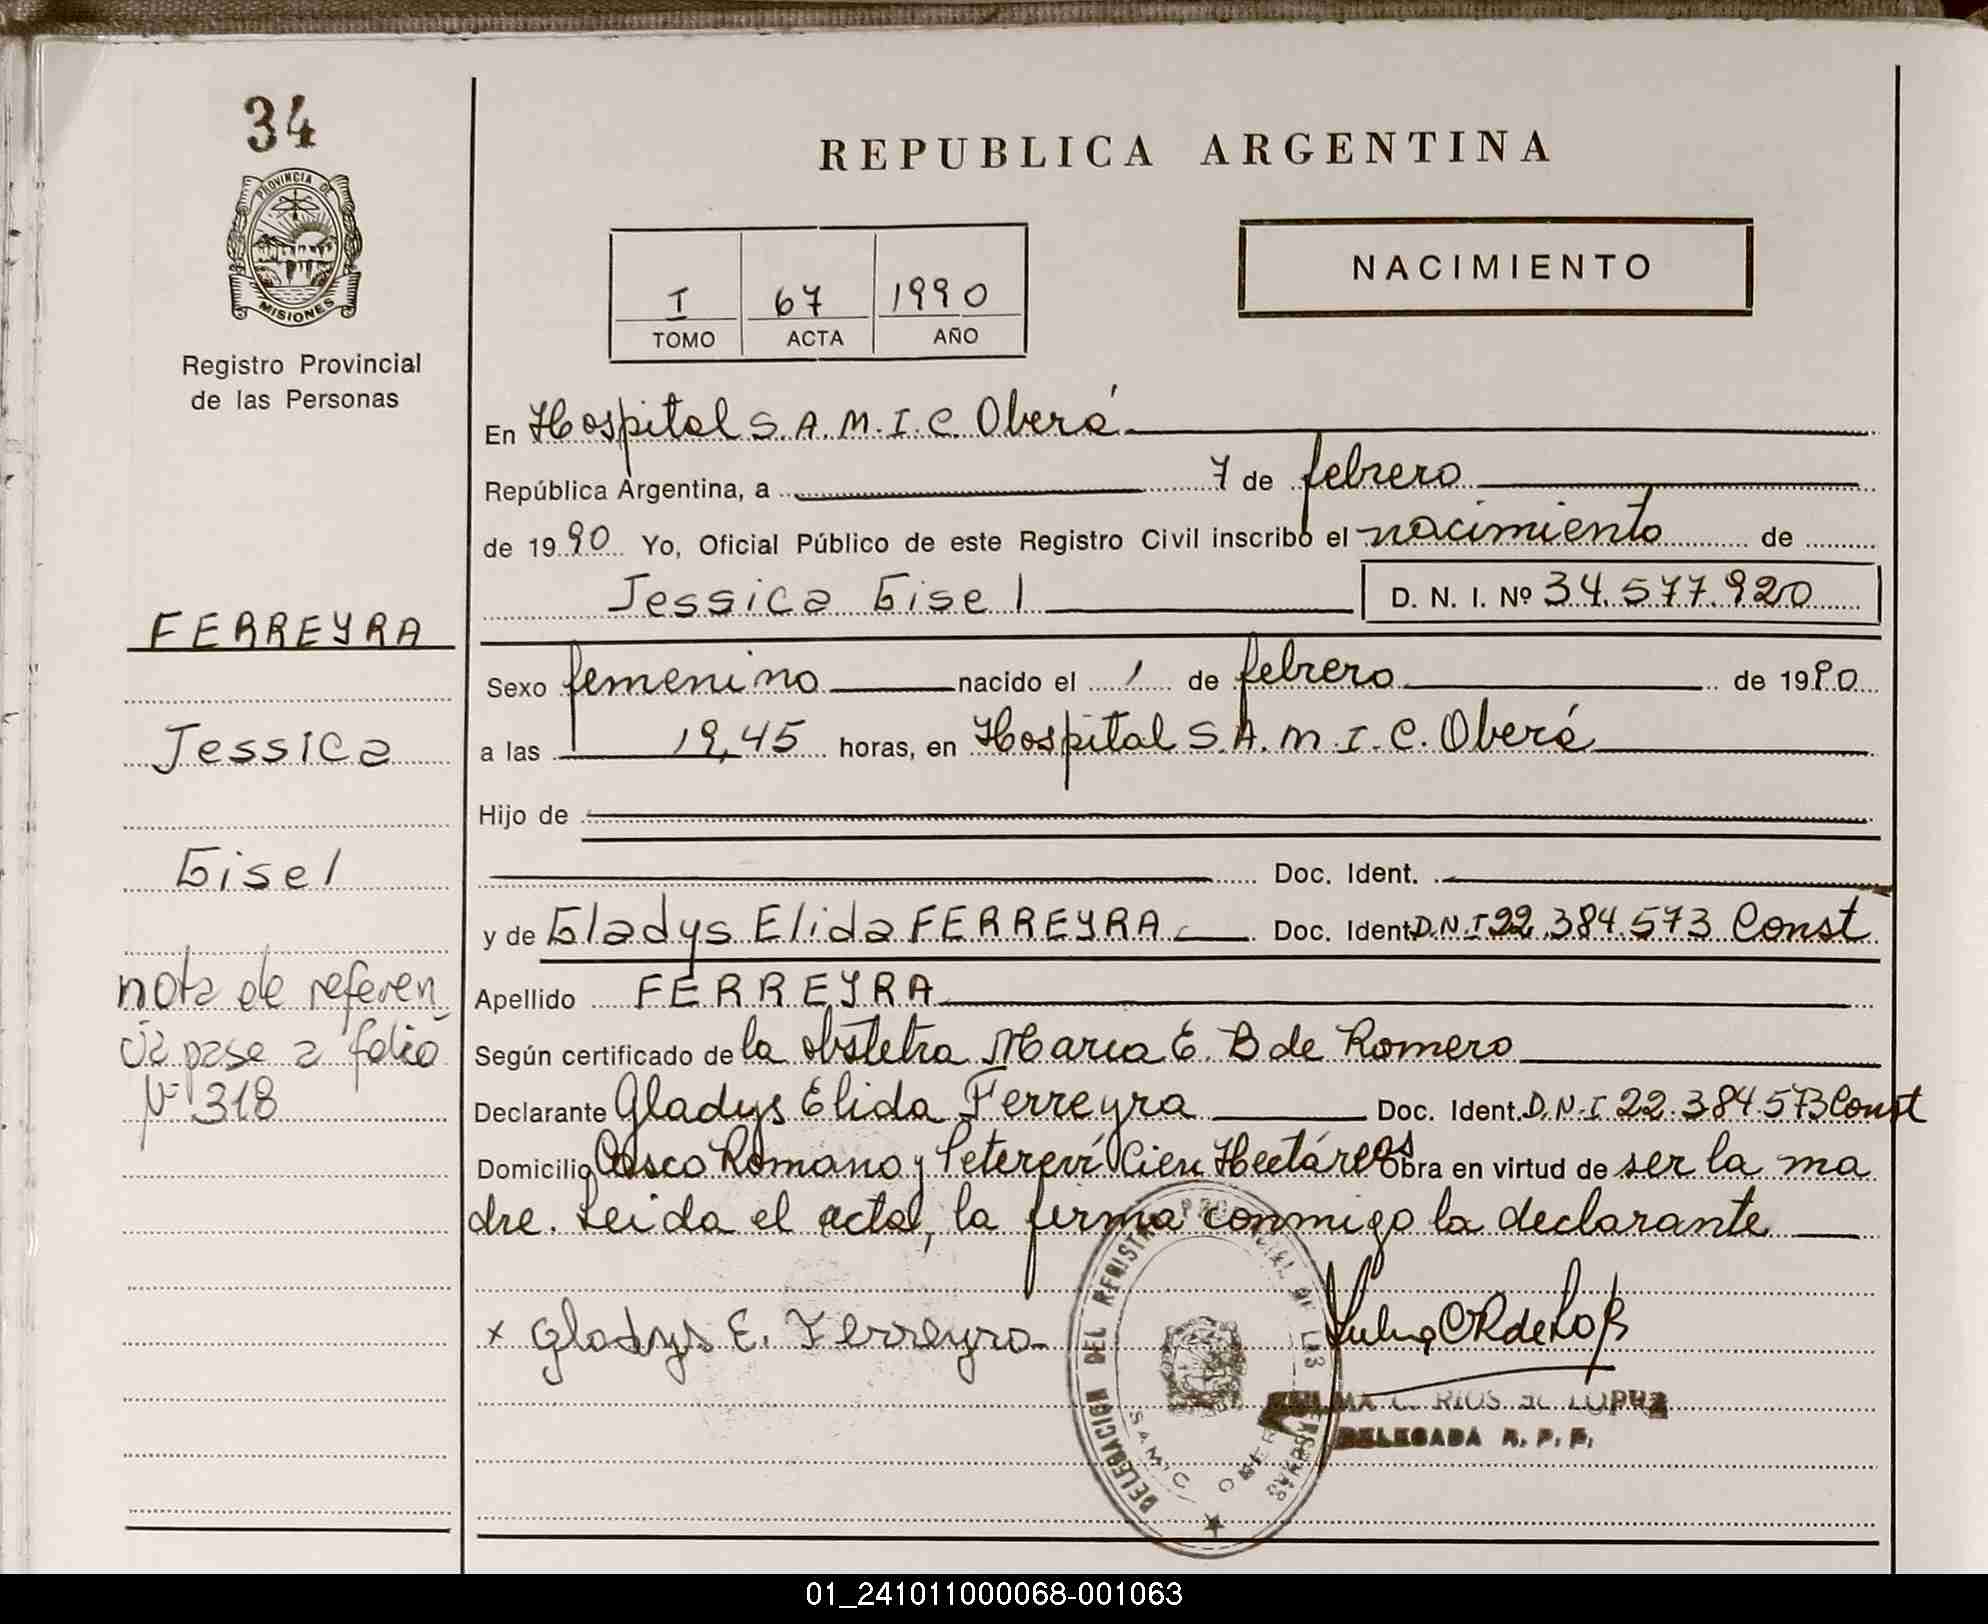 34
PROVINCIA DE
MISIONES
Registro Provincial
de las Personas
FERREYRA
Jessica
Gisel
nota de referen
cia pase a folio
Nº 318
REPUBLICA ARGENTINA
I 67 1990
TOMO ACTA AÑO
NACIMIENTO
En Hospital S.A.M.I.C. Oberá
República Argentina, a 7 de febrero
de 1990 Yo, Oficial Público de este Registro Civil inscribo el nacimiento de
Jessica Gisel D. N. I. Nº 34.577.920
Sexo femenino nacido el 1 de febrero de 1990
a las 19,45 horas, en Hospital S.A.M.I.C. Oberá
Hijo de
Doc. Ident.
y de Gladys Elida FERREYRA Doc. Ident. D.N.I 22.384.573 Const
Apellido FERREYRA
Según certificado de la obstetra Maria E. B de Romero
Declarante Gladys Elida Ferreyra Doc. Ident. D.N.I 22.384.573 Const
Domicilio Casco Romano y Petereví Cien Hectáreas Obra en virtud de ser la ma
dre. Leida el acta, la firma conmigo la declarante
x Gladys E. Ferreyra
DELEGACION DEL REGISTRO PROVINCIAL DE LAS PERSONAS
SAMIC OBERA
C. RIOS de LOPEZ
DELEGADA R. P. P.
01_241011000068-001063